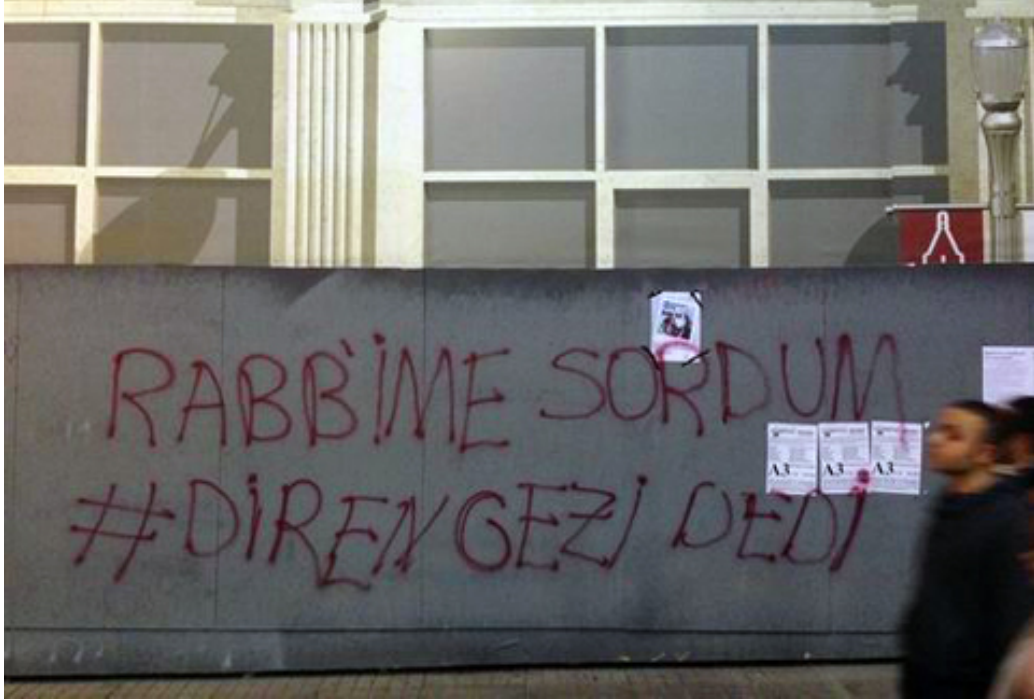 RABB'İME SORDUM
#DİRENGEZİ DEDİ
A3 A3 A3